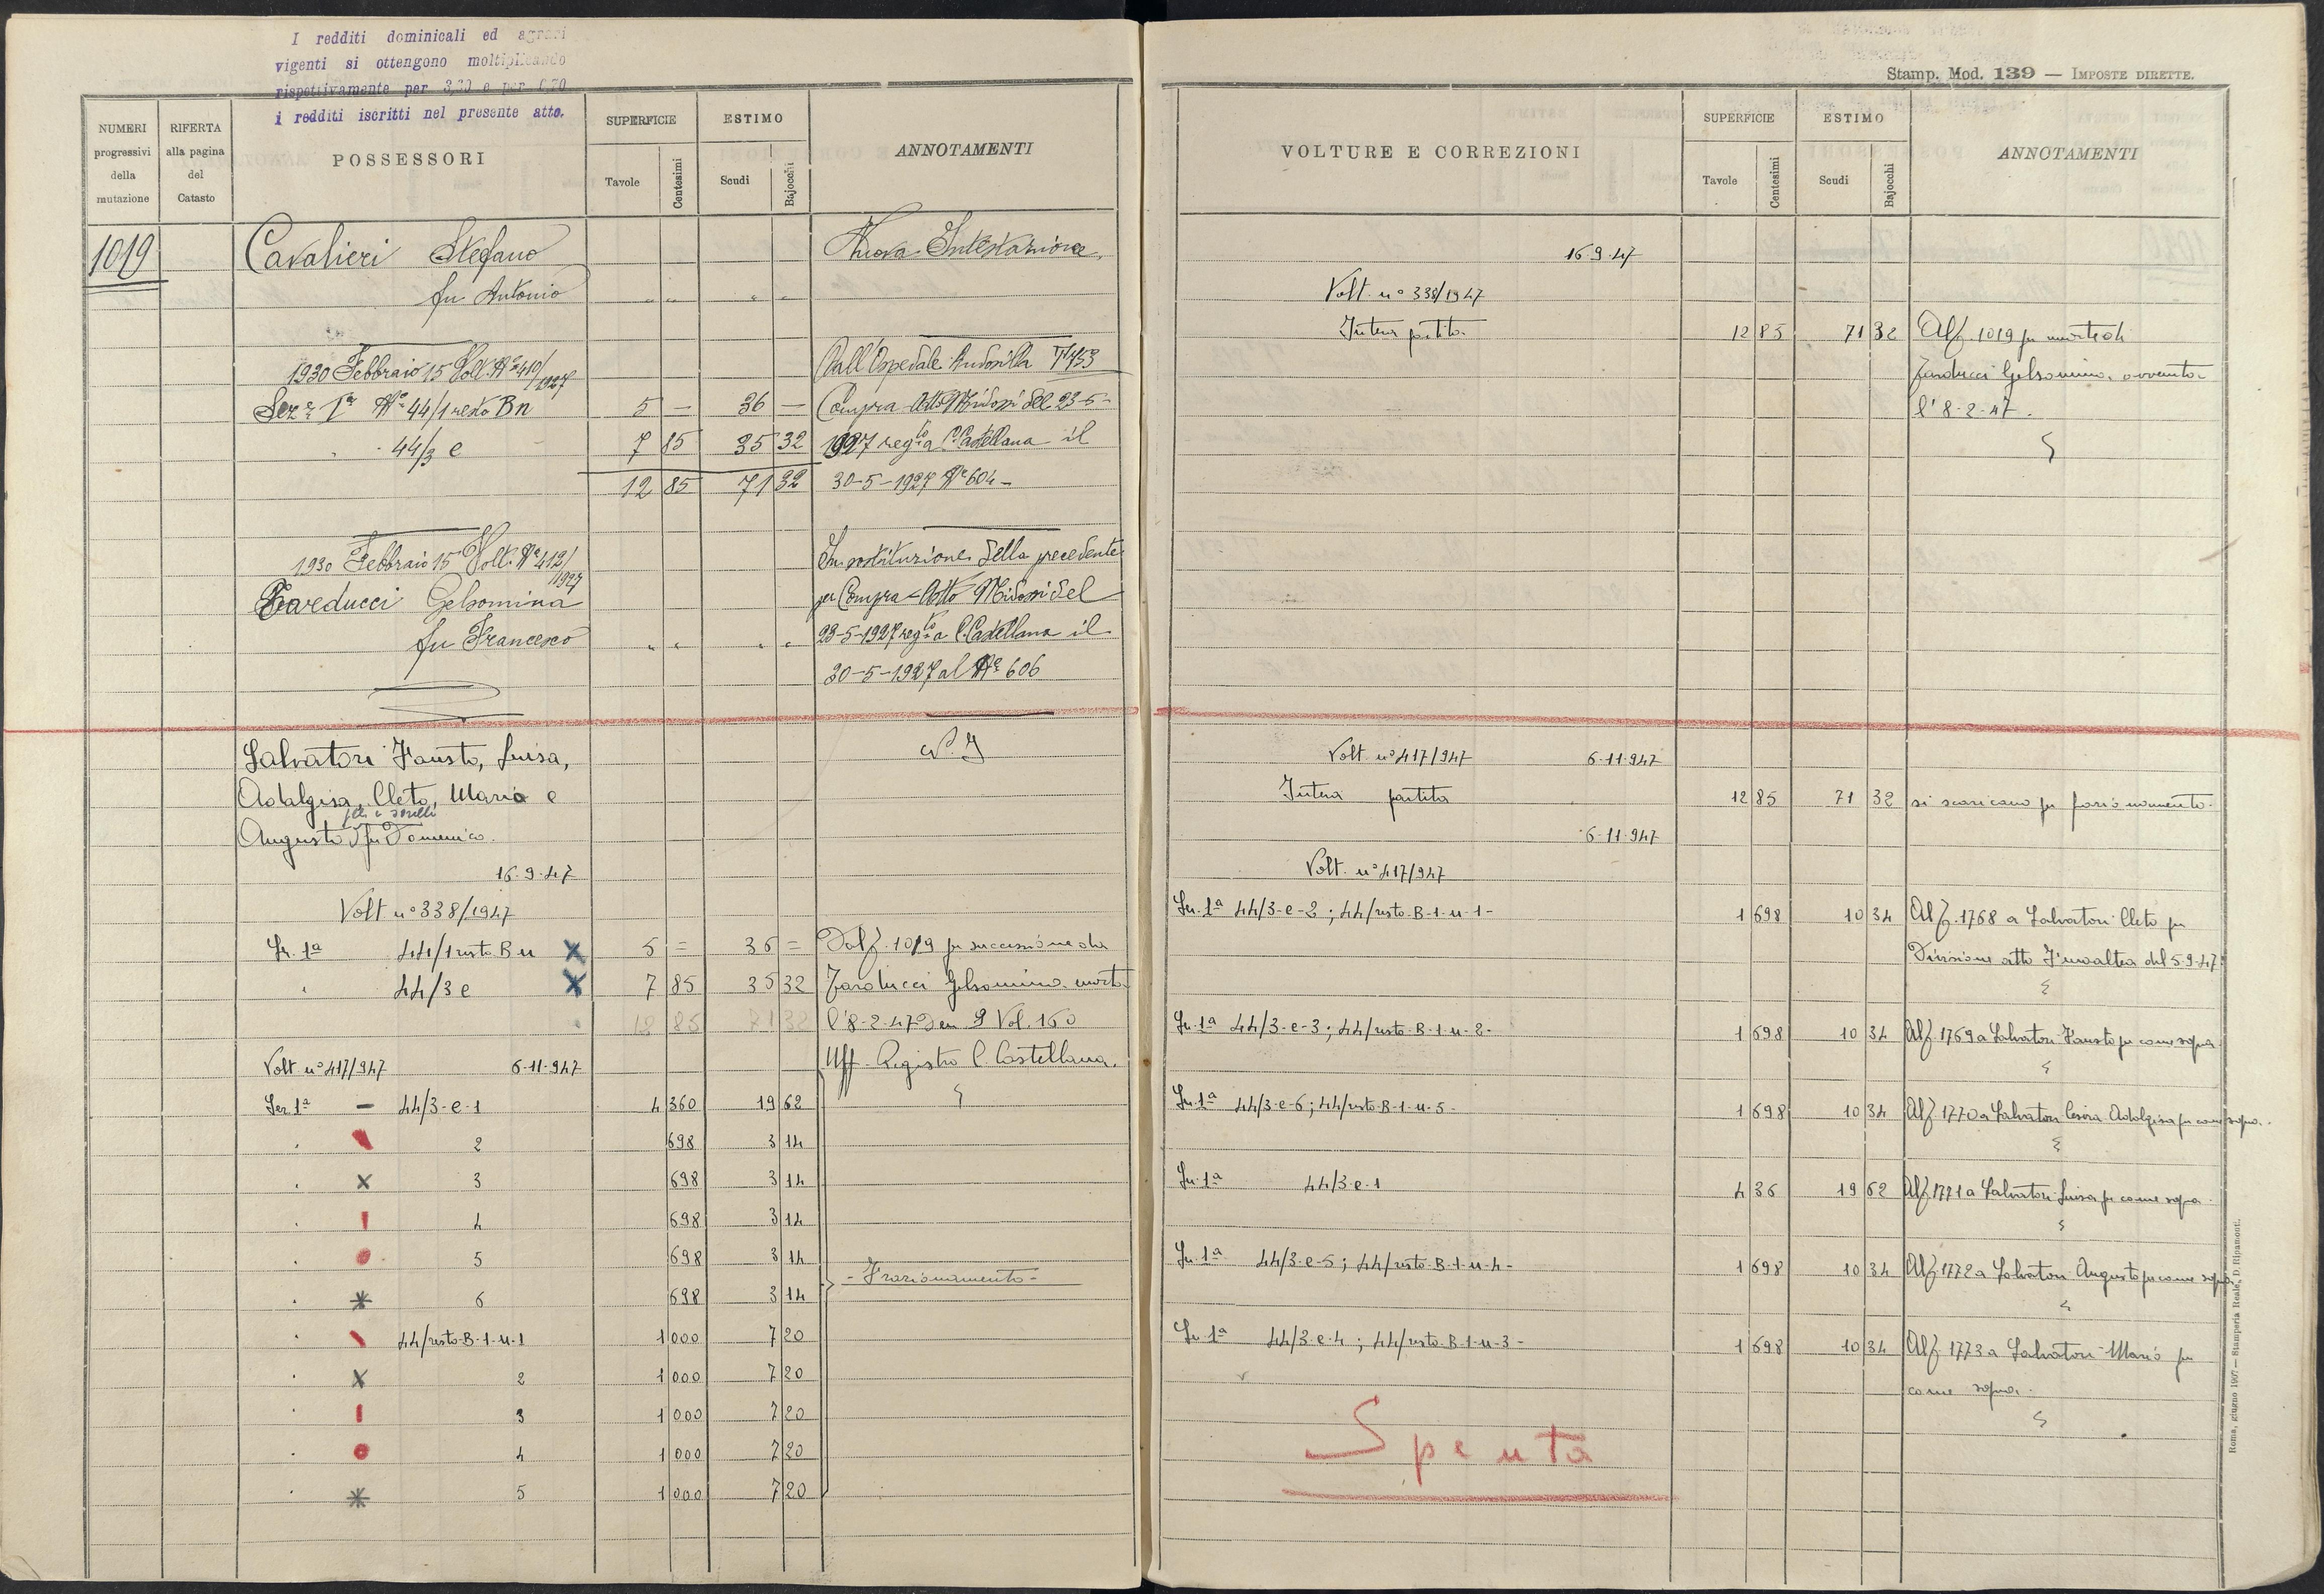 I redditi dominicali ed agrari
vigenti si ottengono moltiplicando
rispettivamente per 3,20 e per 0,70
i redditi iscritti nel presente atto.
NUMERI progressivi della mutazione
RIFERTA alla pagina del Catasto
POSSESSORI
SUPERFICIE
Tavole Centesimi
ESTIMO
Scudi Bajocchi
ANNOTAMENTI
1019 Cavalieri Stefano Nuova Intestazione.
fu Antonio " " " "
1930 Febbraio 15 Volt. Nº 410/1927 Dall'Ospedale Andosilla
Sez.e Iª Nº 44/1 resto Bn 5 — 36 — Compra Atto Midossi del 23-5-
" 44/3 e 7 85 35 32 1927 reg.to a C. Castellana il
12 85 71 32 30-5-1927 Nº 604 —
1930 Febbraio 15 Volt. Nº 412/1927 In sostituzione della precedente
Zarducci Gelsomina per Compra - Atto Midossi del
fu Francesco " " " " 23-5-1927 reg.to a C. Castellana il
30-5-1927 al Nº 606
Salvatori Fausto, Luisa, N. I
Adalgisa, Cleto, Mario e
f.lli e sorelle
Augusto fu Domenico.
16.9.47
Volt nº 338/1947
Sez. 1ª 44/1 resto B u X 5 = 36 = Dal f. 1019 per successione da
" 44/3 e X 7 85 35 32 Zarducci Gelsomina morta
12 85 71 32 l'8-2-47 Den 9 Vol. 160
Uff. Registro C. Castellana.
Volt nº 417/947 6.11.947
Sez 1ª — 44/3-e-1 4 360 19 62
" 2 698 3 14
" X 3 698 3 14
" 4 698 3 14
" 5 698 3 14
- Frazionamento -
" 6 698 3 14
" 44/resto-B-1-u-1 1 000 7 20
" X 2 1 000 7 20
" 3 1 000 7 20
" 4 1 000 7 20
" 5 1 000 7 20
Stamp. Mod. 139 — IMPOSTE DIRETTE.
VOLTURE E CORREZIONI
SUPERFICIE
Tavole Centesimi
ESTIMO
Scudi Bajocchi
ANNOTAMENTI
16.9.47
Volt. nº 338/1947
Intera partita 12 85 71 32 Al f. 1019 per morte di
Zarducci Gelsomina, avvenuta
l'8-2-47.
Volt. nº 417/947 6-11-947
Intera partita 12 85 71 32 si scaricano per frazionamento.
6-11-947
Volt. nº 417/947
Sez. 1ª 44/3-e-2; 44/resto-B-1-u-1- 1 698 10 34 Al f. 1768 a Salvatori Cleto per
Divisione atto Finoaltea del 5-9-47
Sez. 1ª 44/3-e-3; 44/resto-B-1-u-2- 1 698 10 34 Al f. 1769 a Salvatori Fausto per come sopra
Sez. 1ª 44/3-e-6; 44/resto-B-1-u-5- 1 698 10 34 Al f. 1770 a Salvatori Adalgisa per come sopra.
Sez. 1ª 44/3-e-1 4 36 19 62 Al f. 1771 a Salvatori Luisa per come sopra.
Sez. 1ª 44/3-e-5; 44/resto-B-1-u-4- 1 698 10 34 Al f. 1772 a Salvatori Augusto per come sopra
Sez. 1ª 44/3-e-4; 44/resto-B-1-u-3- 1 698 10 34 Al f. 1773 a Salvatori Mario per
come sopra.
Spenta
Roma, giugno 1907 — Stamperia Reale, D. Ripamonti.